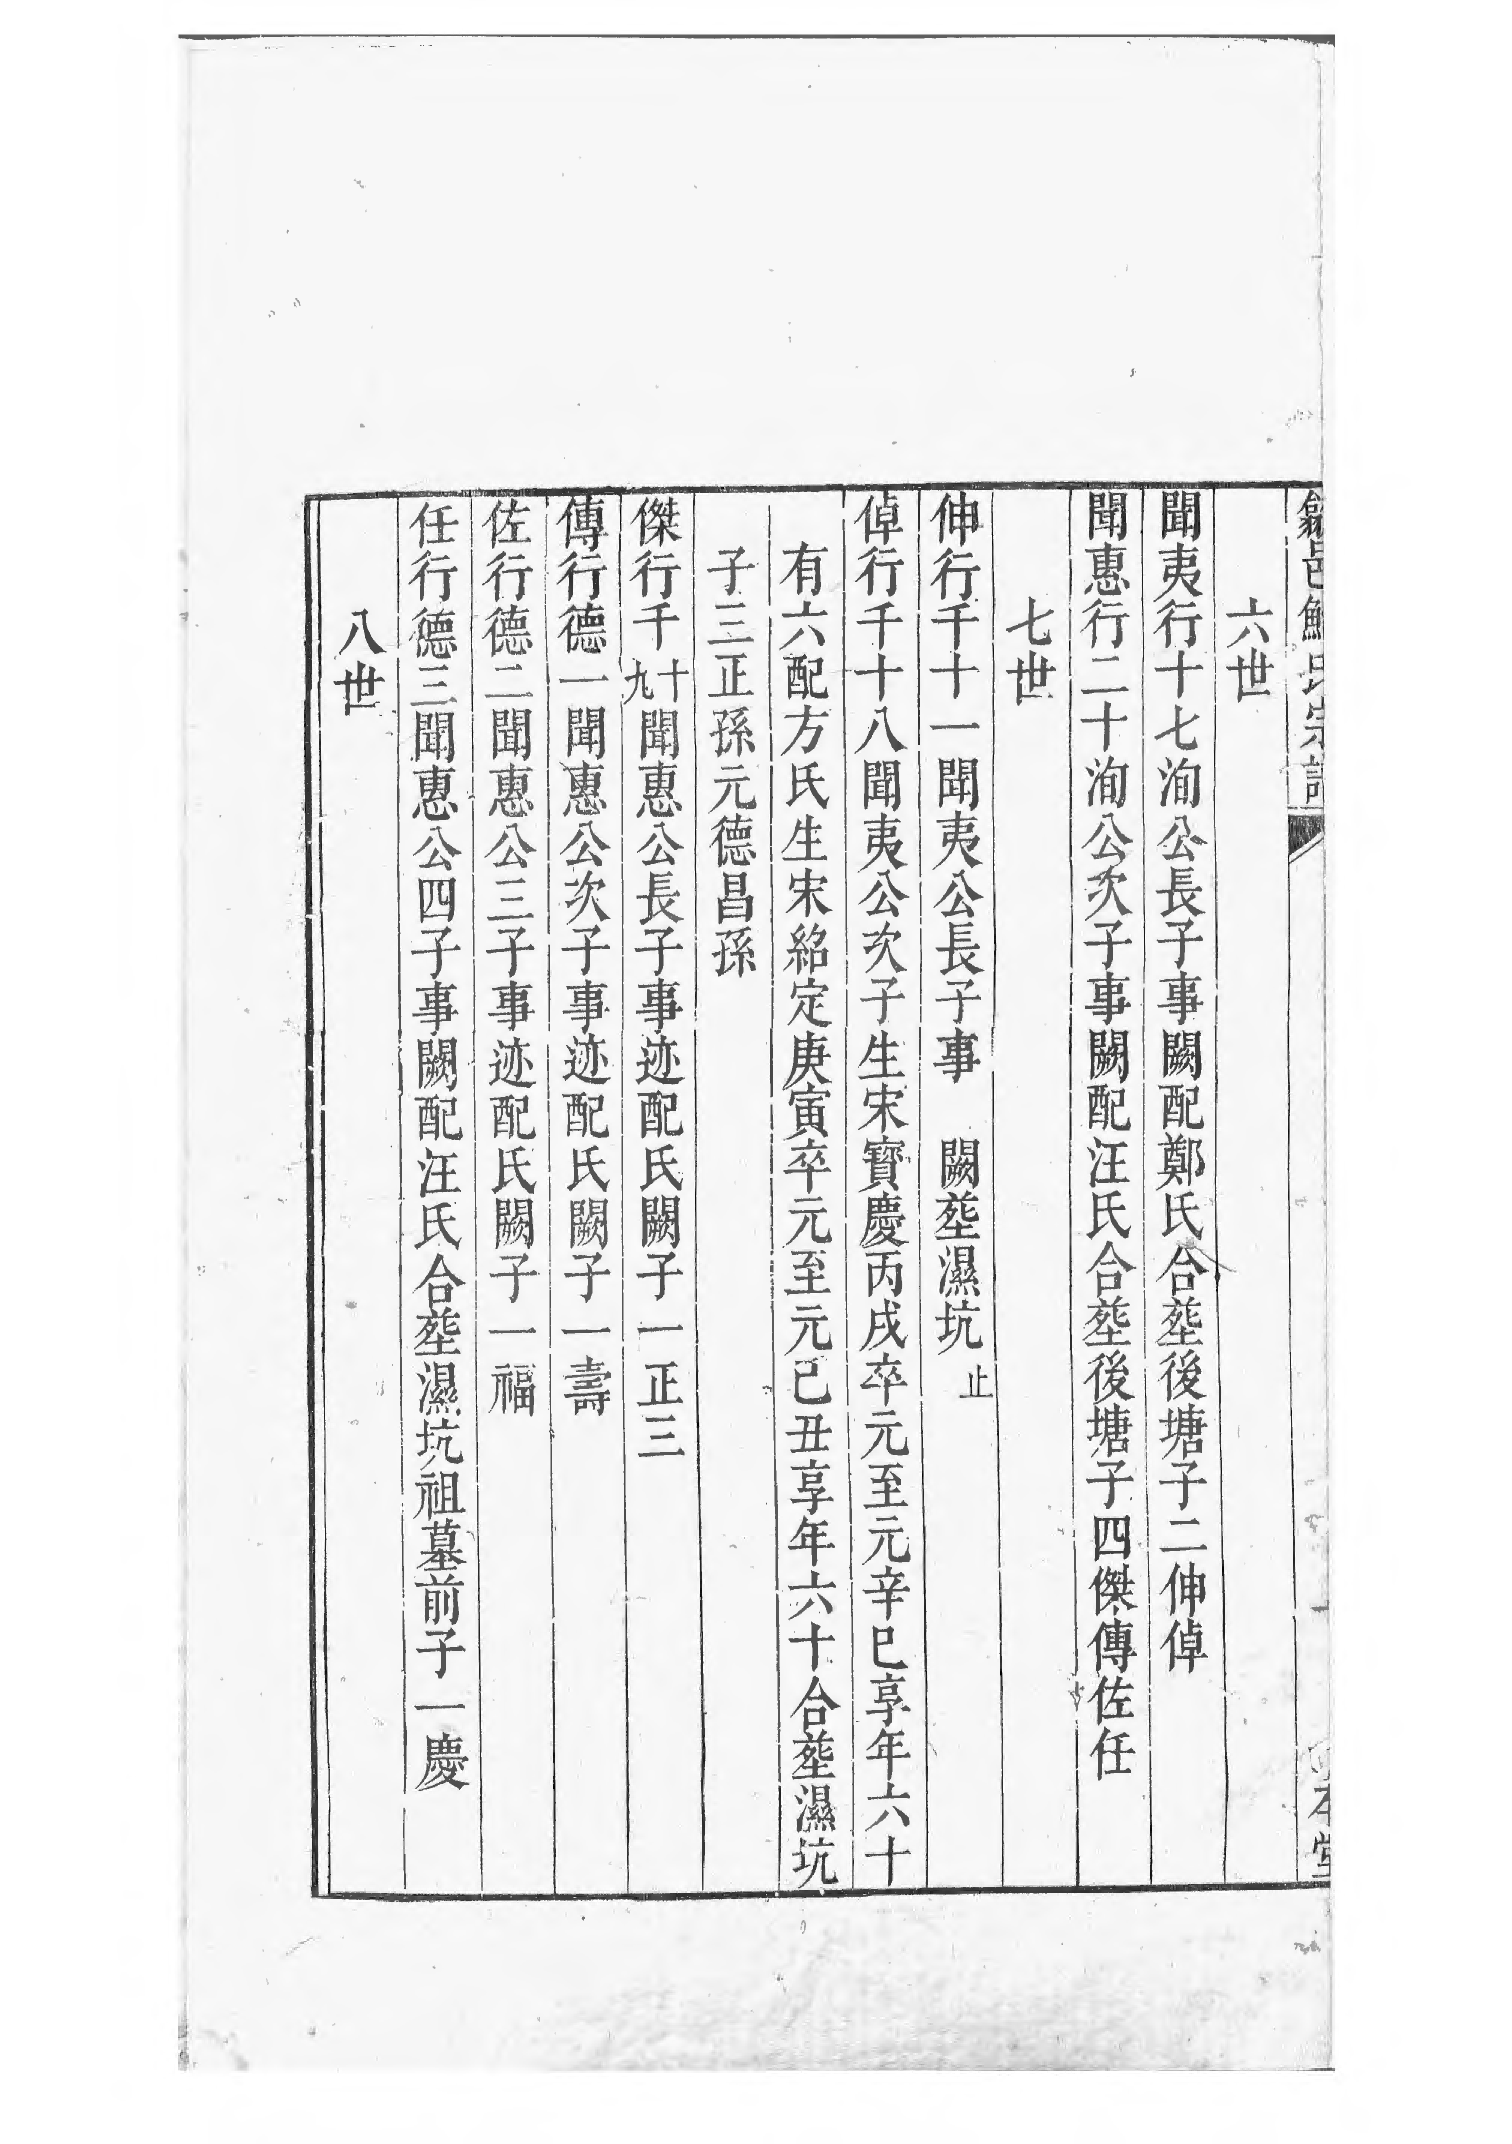 歙邑鮑氏宗譜
本堂
六世
聞夷行十七洵公長子事闕配鄭氏合塟後塘子二伸倬
聞惠行二十洵公次子事闕配汪氏合塟後塘子四傑傳佐任
七世
伸行千十一聞夷公長子事　闕塟濕坑止
倬行千十八聞夷公次子生宋寳慶丙戌卒元至元辛巳享年六十
有六配方氏生宋紹定庚寅卒元至元己丑享年六十合塟濕坑
子三正孫元德昌孫
傑行千十九聞惠公長子事迹配氏闕子一正三
傳行德一聞惠公次子事迹配氏闕子一壽
佐行德二聞惠公三子事迹配氏闕子一福
任行德三聞惠公四子事闕配汪氏合塟濕坑祖墓前子一慶
八世